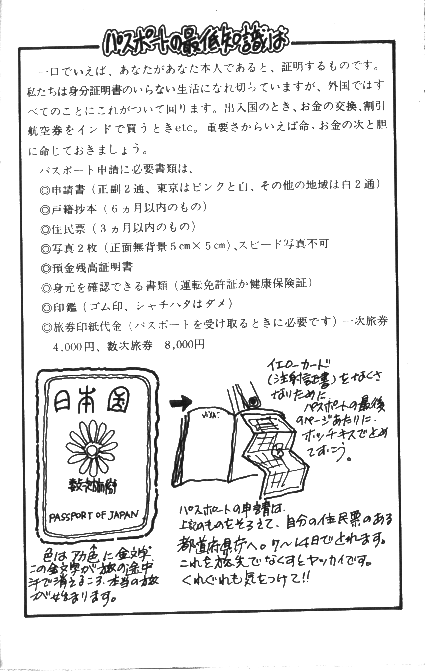 パスポートの最低知識は
一口でいえば、あなたがあなた本人であると、証明するものです。
私たちは身分証明書のいらない生活になれ切っていますが、外国ではす
べてのことにこれがついて回ります。出入国のとき、お金の交換、割引
航空券をインドで買うときetc。重要さからいえば命、お金の次と胆
に命じておきましょう。
パスポート申請に必要書類は、
◎申請書(正副2通、東京はピンクと白、その他の地域は白2通)
◎戸籍抄本(6ヵ月以内のもの)
◎住民票(3ヵ月以内のもの)
◎写真2枚(正面無背景5cm×5cm)、スピード写真不可
◎預金残高証明書
◎身元を確認できる書類(運転免許証か健康保険証)
◎印鑑(ゴム印、シャチハタはダメ)
◎旅券印紙代金(パスポートを受け取るときに必要です)一次旅券
4,000円、数次旅券 8,000円
イエローカード
(注射証明書)をなくさ
ないために
パスポートの最後
のページあたりに
ホッチキスでとめ
ておこう。
日本国
数次旅券
PASSPORT OF JAPAN
VISA
色はアカ色に金文字
この金文字が旅の途中
汗で消えるころ、本当の旅
が始まります。
パスポートの申請は
上記のものをそろえて、自分の住民票のある
都道府県庁へ。7〜14日でとれます。
これを旅先でなくすとヤッカイです。
くれぐれも気をつけて!!